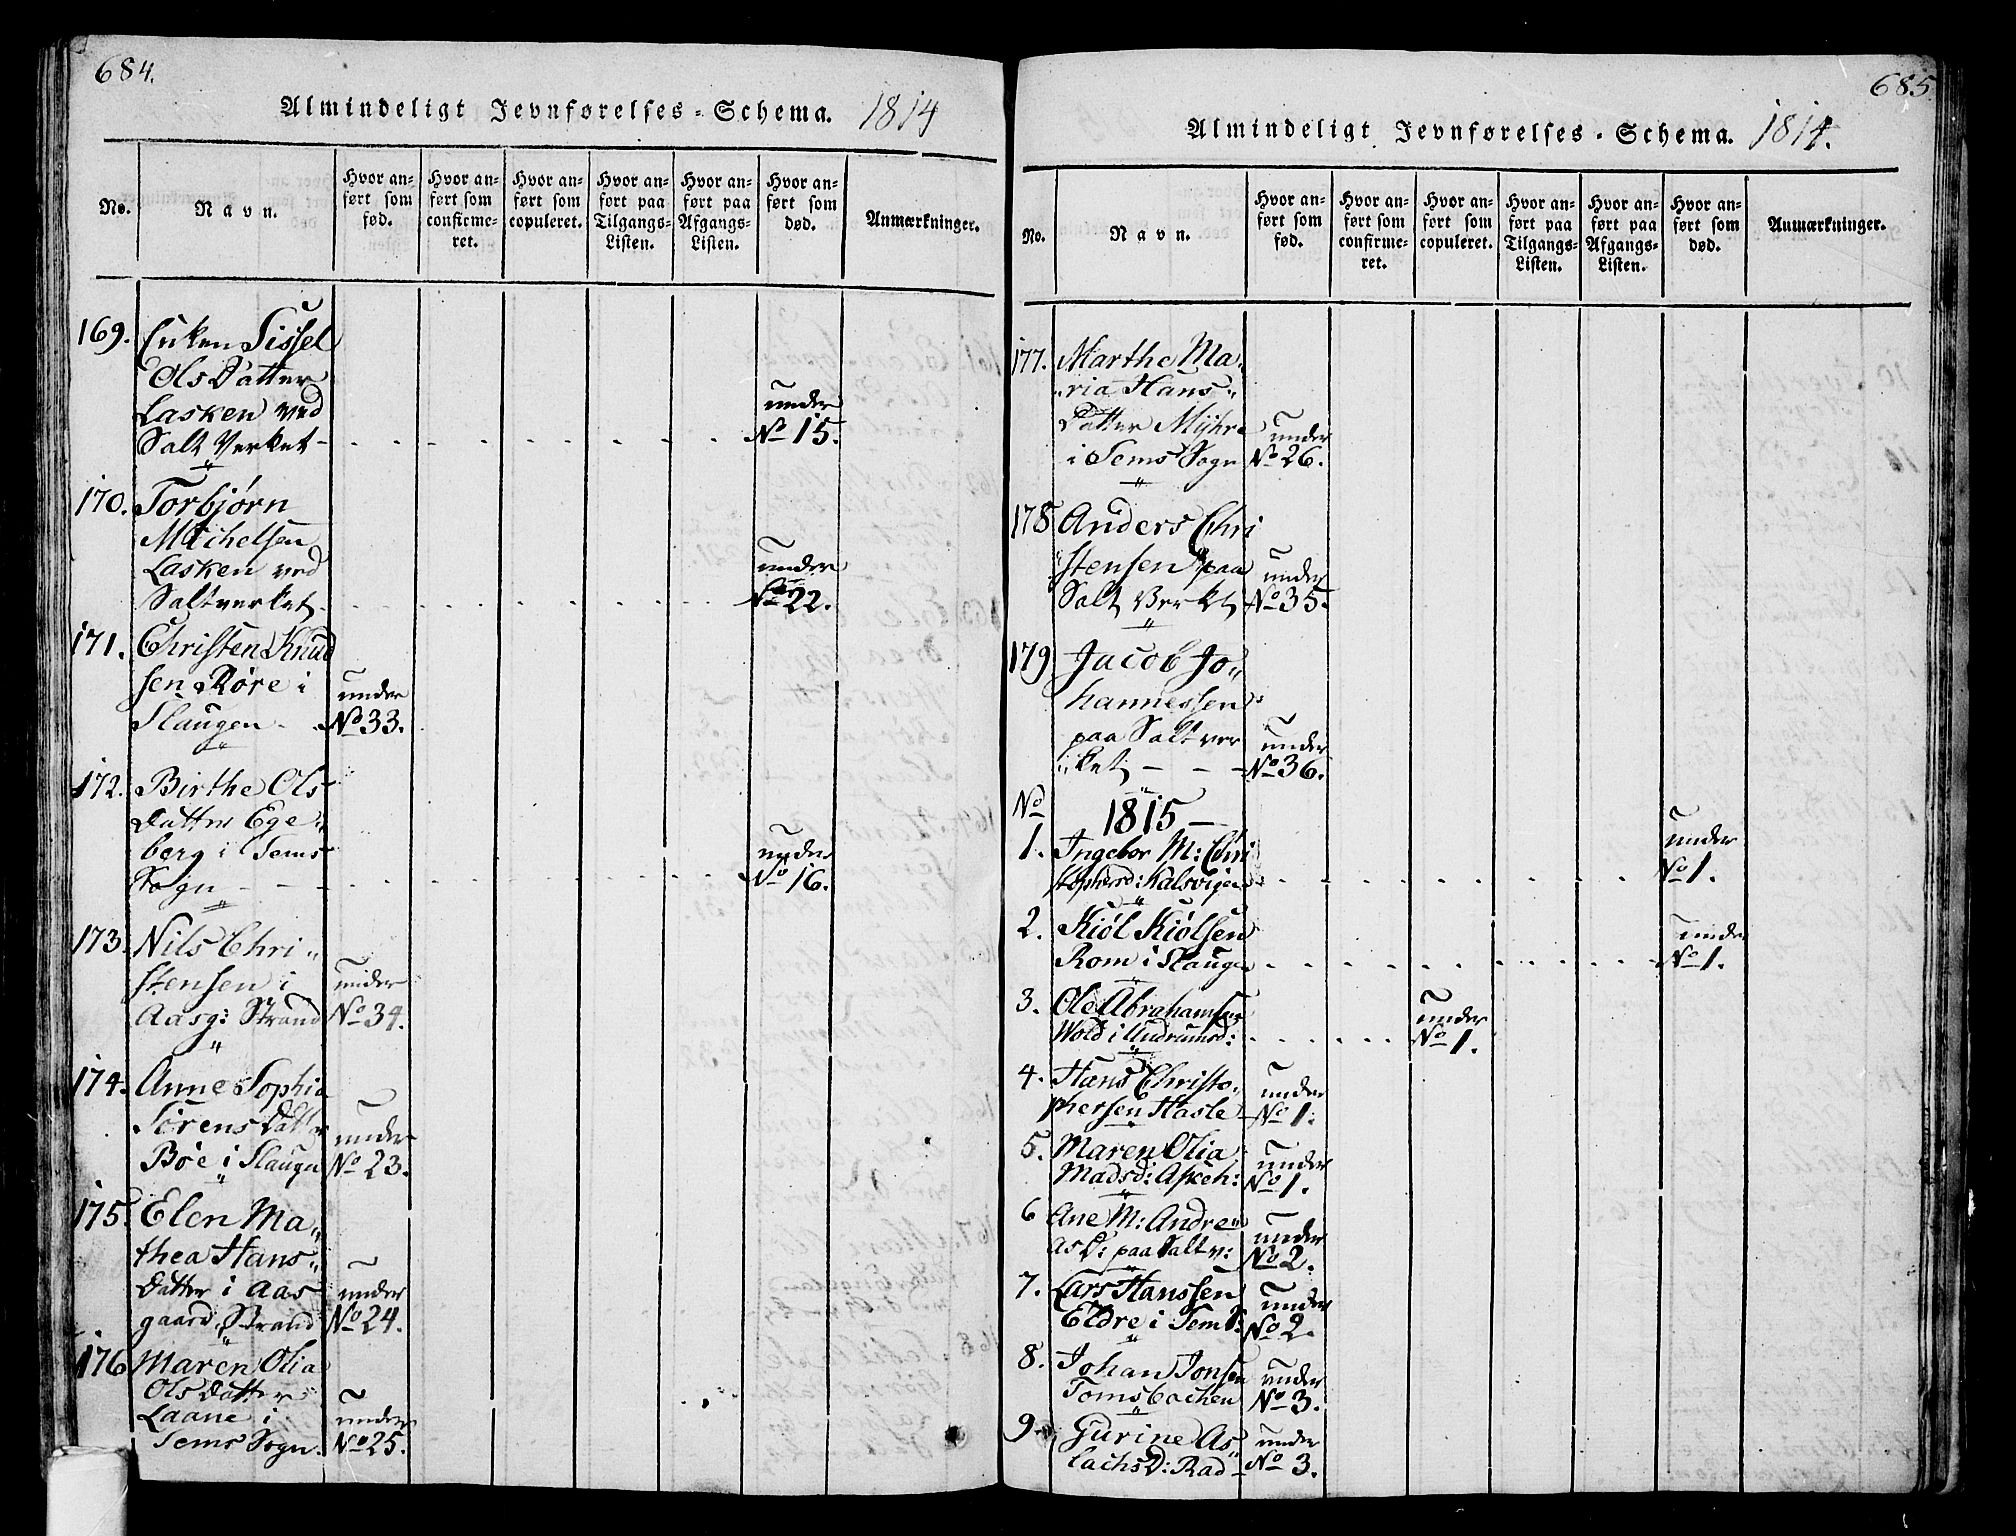 684.
Almindeligt Jevnførelses-Schema. 1814
No.
Navn.
Hvor an-
ført som
fød.
Hvor an-
ført som
confirme-
ret.
Hvor an-
ført som
copuleret.
Hvor an-
ført paa
Tilgangs-
Listen.
Hvor an-
ført paa
Afgangs-
Listen.
Hvor an-
ført som
død.
Anmærkninger.
169. Enken Sissel
Ols Datter
Lasken ved
under
Salt Verket - No 15.
170. Torbjørn
Michelsen
Lasken ved
under
Saltverket - No 22.
171. Christen Knud
sen Røre i
under
Slaugen - No 33.
172. Birthe Ols
Datter Ege„
berg i Sems
under
Sogn - - - No 16.
173. Nils Chri„
stensen i
under
Aasg: Strand No 34.
174. Anne Sophia
Sørens Datter
under
Bøe i Slaugen No 23.
175. Elen Ma„
thea Hans„
Datter i Aas
under
gaard Strand No 24.
176 Maren Olia
Ols Datter
Laane i
under
Sems Sogn. No 25.
685
Almindeligt Jevnførelses-Schema. 1814.
No.
Navn.
Hvor an-
ført som
fød.
Hvor an-
ført som
confirme-
ret.
Hvor an-
ført som
copuleret.
Hvor an-
ført paa
Tilgangs-
Listen.
Hvor an-
ført paa
Afgangs-
Listen.
Hvor an-
ført som
død.
Anmærkninger.
177. Marthe Ma„
„ria Hans„
Datter Mÿhre
under
i Sems Sogn No 26.
178 Anders Chri
„stensen paa
under
Salt Verket No 35.
179 Jacob Jo„
hannessen
paa Saltver
under
„ket - - - No 36.
No 1815 -
1. Ingebor M: Chri
under
stophersd: Kalsvigen No 1.
2. Kiøl Kiølsen
under
Rom i Slaugen No 1.
3. Ole Abrahamsen
under
Wold i Undrumsd: No 1.
4. Hans Christo„
under
phersen Hasle No 1.
5. Maren Olia
under
Madsd: Askeh: No 1.
6 Ane M: Andre„
under
as D: paa Saltv: No 2.
7. Lars Hanssen
under
Eldre i Sem S: No 2.
8. Johan Jonsen
under
Tomsbachen No 3.
9. Gurine As„
under
lachs D: Rad- No 3.